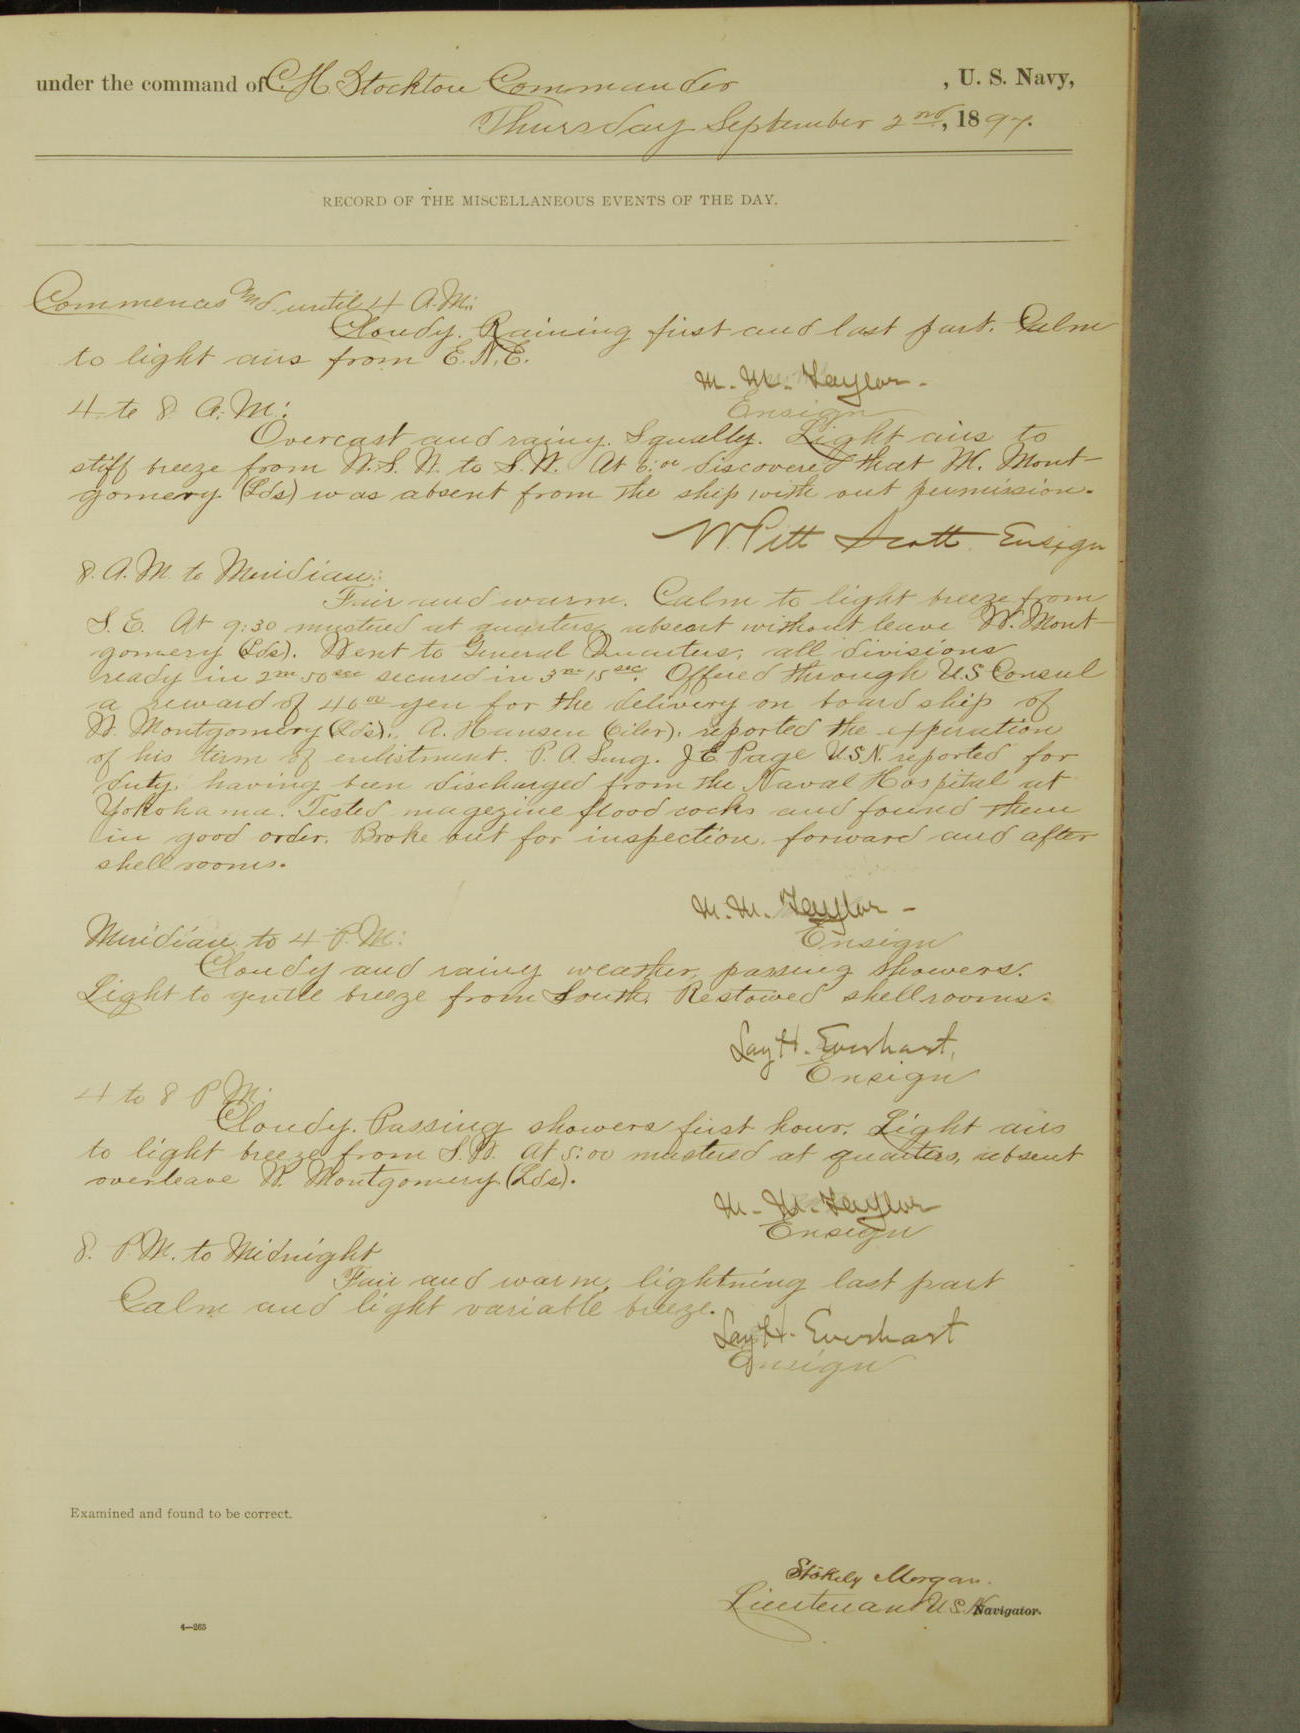 under the command of C. H. Stockton Commander, U. S. Navy,
Thursday September 2nd, 1897.
RECORD OF THE MISCELLANEOUS EVENTS OF THE DAY.
Commences Md. until 4 A.M.:
Cloudy. Raining first and last part. Calm
to light airs from E.N.E.
M. M. Taylor -
Ensign
4 to 8 A.M.:
Overcast and rainy. Squally. Light airs to
stiff breeze from W.S.W. to S.W. At 6:00 discovered that W. Mont-
gomery (Lds) was absent from the ship with out permission.
W. Pitt Scott Ensign
8. A.M. to Meridian:
Fair and warm. Calm to light breeze from
S. E. At 9:30 mustered at quarters, absent without leave W. Mont-
gomery (Lds). Went to General Quarters; all divisions
ready in 2m 50sec secured in 3m 15sec. Offered through U S Consul
a reward of 40 00 yen for the delivery on board ship of
W. Montgomery (Lds). A. Hansen (Oiler). reported the expiration
of his term of enlistment. P. A. Surg. J E Page U.S.N. reported for
duty, having been discharged from the Naval Hospital at
Yokohama. Tested magezine flood cocks and found them
in good order. Broke out for inspection, forward and after
shell rooms.
M. M. Taylor -
Ensign
Meridian to 4 P.M:
Cloudy and rainy weather, passing showers.
Light to gentle breeze from South. Restowed shellrooms.
Lay H. Everhart,
Ensign
4 to 8 P M:
Cloudy. Passing showers first hour. Light airs
to light breeze from S.W. At 5:00 mustered at quarters, absent
overleave W. Montgomery (Lds).
M. M. Taylor
Ensign
8. P.M. to Midnight
Fair and warm, lightning last part
Calm and light variable breeze.
Lay H. Everhart
Ensign
Examined and found to be correct.
Stokely Morgan.
Lieutenant U.S.N. Navigator.
4—265